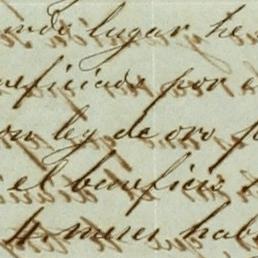 lugar he
neficiado por
ley de oro
el beneficio
4 meses hab